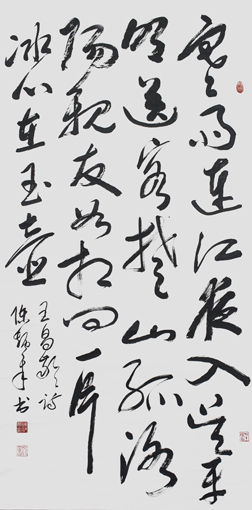 寒雨連江夜入吴平
明送客楚山孤洛
陽親友如相問一片
冰心在玉壶
王昌齡詩
陈年书